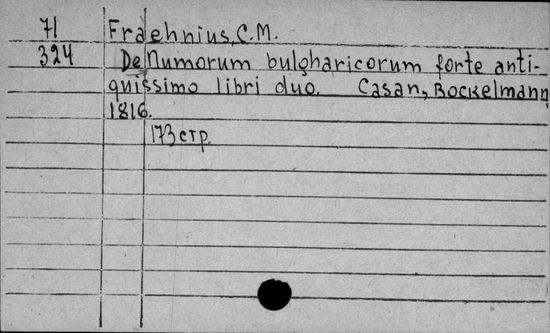 71 Fraehnius, C.M.
324 De Numorum bulgharicorum forte anti-
quissimo libri duo. Casan, Bockelmann
1816.
173 стр.